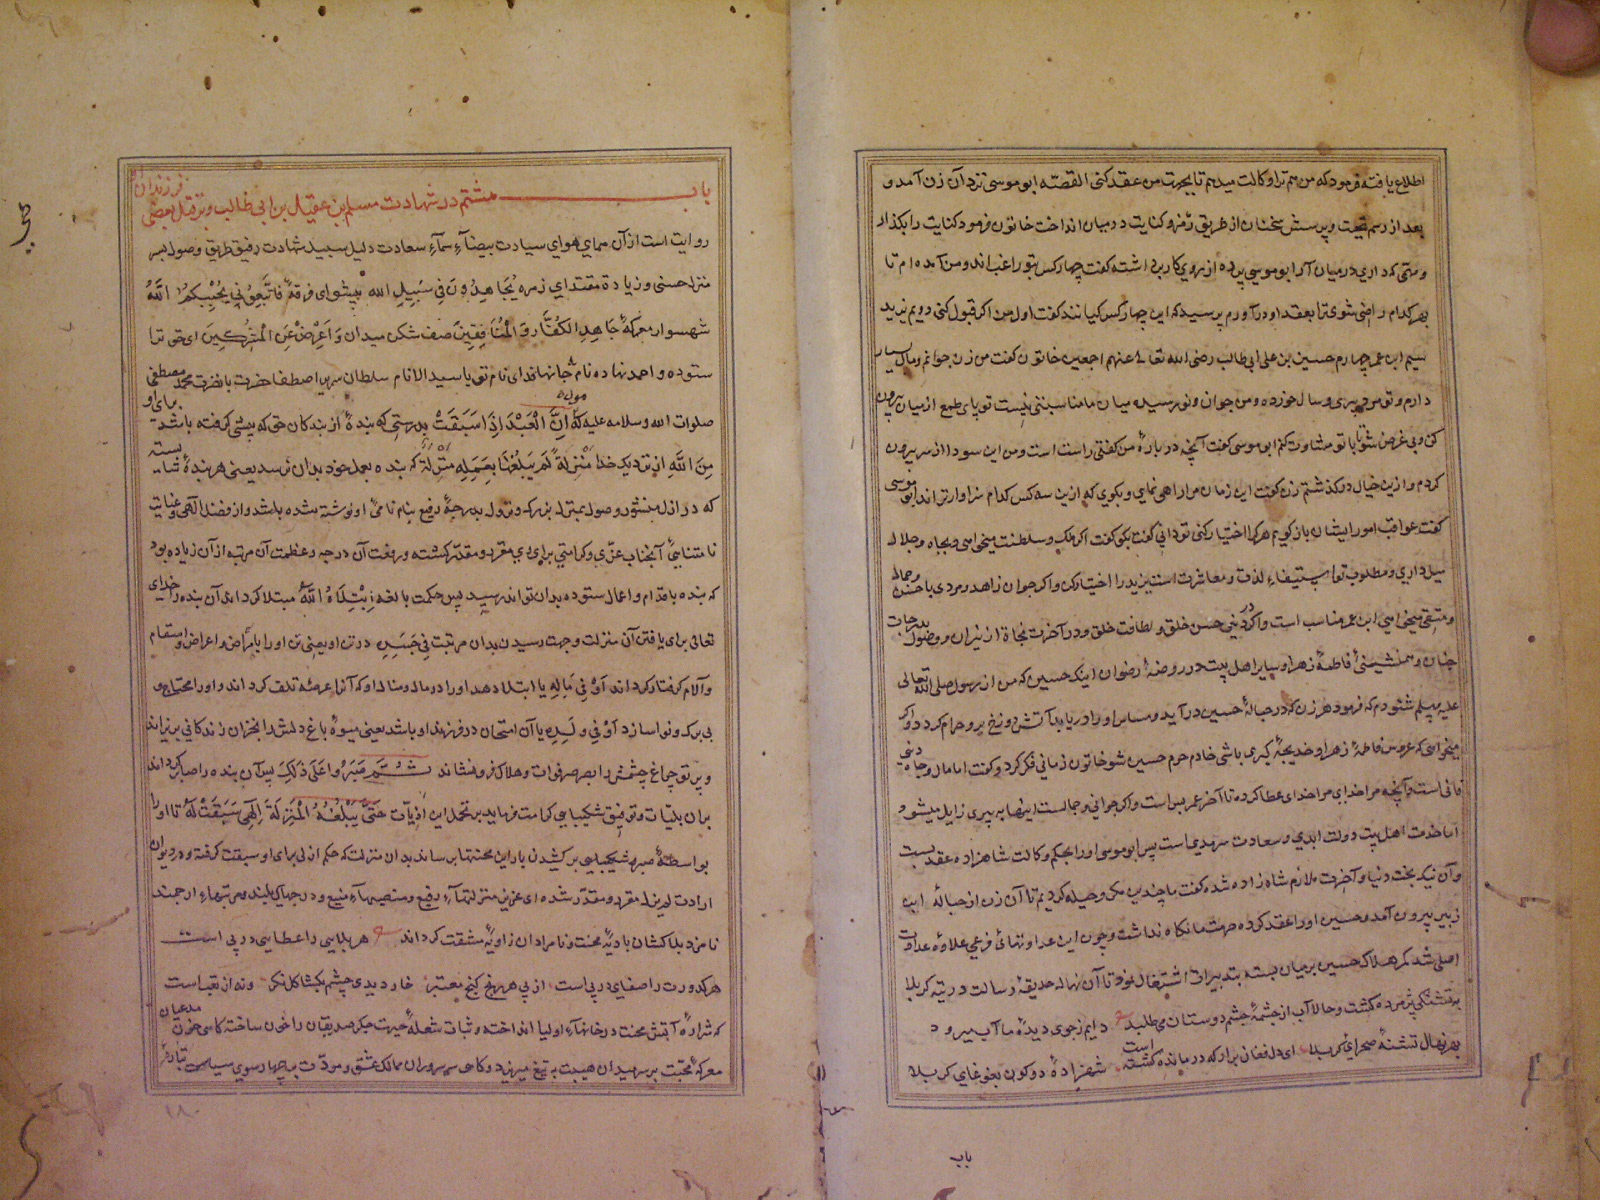 اطلاع یافته فرمود که من هم ترا وکالت میدهم تا بجهت من عقد کنی القصه ابو موسی نزد آن زن آمد و
بعد از رسم تحیت و پرسش سخنان از طریق رمز و کنایت در میان انداخت خاتون فرمود کنایت را بکذار
و متی که داری در میان آر ابو موسی پرده از روی کار برداشته کفت چهار کس بتو راغب اند و من آمده ام تا
بهر کدام راضی شوی ترا بعقد او درآورم پرسید که این چهار کس کیانند کفت اول من اکر قبول کنی دویم یزید
سیم ابن عمر چهارم حسین بن علی ابی طالب رضی الله تعالی عنهم اجمعین خاتون کفت من زن جوانم و مال بسیار
دارم و تو مرد پیری و سال خورده و من جوان و نو رسیده میان ما مناسبتی نیست تو پای طمع از میان بیرون
کن و بی غرض شو تا با تو مشاورت کنم ابو موسی کفت آنچه درباره من کفتی راست است و من این سودا از سر بیرون
کردم و ازین خیال درکذشتم زن کفت این زمان مرا راهی نمای و بکوی که ازین سه کس کدام سزاوارتر اند ابو موسی
کفت عواقب امور ایشان باز کویم هر کرا اختیار کنی تو دانی کفت بکو کفت اکر ملک و سلطنت میخواهی و بجاه و جلال
میل داری و مطلوب تو استیفاء لذت و معاشرت است یزید را اختیار کن و اکر جوان زاهد و مردی با حسن و جمال
و متقی میخواهی ابن عمر مناسب است و اکر در دنیی حسن خلق و لطافت خلق و در آخرت نجاة از نیران و وصول بدرجات
جنان و همنشینی فاطمه زهرا و سایر اهل بیت در روضه رضوان اینک حسین که من از رسول صلی الله تعالی
علیه و سلم شنودم که فرمود هر زن که در حباله حسین در آید و مساس او را دریابد آتش دوزخ برو حرام کردد و اکر
میخواهی که عروس فاطمه زهرا و خدیجه کبری باشی خادم حرم حسین شو خاتون زمانی فکر کرد و کفت اما مال و جاه دنیی
فانی است و آنچه مرا خدای مرا خدای عطا کرده تا آخر عمر بس است و اکر جوانی و جمالست اینها به پیری زایل میشود
اما خدمت اهل بیت دولت ابدی و سعادت سرمدی است پس ابو موسی او را بحکم وکالت شاهزاده عقد بست
و آن نیک بخت دنیا و آخرت ملازم شاه زاده شد کفت ما چندین مکر و حیله کردیم تا آن زن از حباله ابن
زبیر بیرون آمد و حسین او را عقد کرده حرمت ما نکاه نداشت و چون این عداوتهای فرعی علاوه عداوت
اصلی شد کمر هلاک حسین بر میان بسته بتدبیرات اشتغال نمود تا آن نهال حدیقه رسالت در تربت کربلا
به تشنکی پژمرده کشت و حالا آب از چشمه چشم دوستان می طلبد دایم ز جوی دیده ما آب میرود
بهر نهال تشنه صحرای کربلا ای دل فغان برار که در مانده کشته است شهزاده دو کون بغوغای کربلا
باب
باب هشتم در شهادت مسلم بن عقیل بن ابی طالب و قتل بعضی فرزندان
روایت است از آن همای هوای سیادت بیضاء سماء سعادت دلیل سبیل شهادت رفیق طریق وصول بسر
منزل حسنی و زیادة مقتدای زمره یُجَاهِدُونَ فی سَبِیلِ الله پیشوای فرقه فَاتَّبِعُونِی یُحْبِبْکُمُ اللهُ
شهسوار معرکه جَاهِدِ الکُفَّارَ وَ الْمُنَافِقِینَ صف شکن میدان وَ اَعْرِضْ عَنِ الْمُشْرِکِینَ ای حق ترا
ستوده و احمد نهاده نام جانها فدای نام تو یا سید الانام سلطان سریر اصطفا حضرت محمد مصطفی
صلوات الله و سلامه علیه که اِنَّ الْعَبْدَ اِذَا سَبَقَتْ بدرستی که بنده از بندکان حق که پیشی کرفته باشد برای او
مِنَ اللهِ از نزدیک خدا مَنْزِلَة لَمْ یَبْلُغْهَا بِعَمَلِهِ منزله که بنده بعمل خود بدان نرسد یعنی هر بنده شایسته
که در ازل منشور وصول بمنزل بزرک و نزول بدرجه رفیع بنام نامی او نوشته شده باشد و از فضل الهی و عنایت
نامتناهی آنجناب عزی و کرامتی برای وی مقرر و مقدر کشته و رفعت آن درجه و عظمت آن مرتبه از آن زیاده بود
که بنده باقدام و اعمال ستوده بدان تواند رسید پس حکمت بالغه اِبْتِلَاهُ اللهُ مبتلا کرداند آن بنده را خدای
تعالی برای یافتن آن منزلت و جهت رسیدن بدان مرتبت فِی جَسَدِهِ در تن او یعنی تن او را بامراض و اعراض و اسقام
و آلام کرفتار کرداند اَوْ فِی مَالِهِ یا ابتلا دهد او را در مال و منال او که آنرا عرضه تلف کرداند و او را محتاج و
بی برک و نوا سازد اَوْ فِی وَلَدِهِ یا آن امتحان در فرزند او باشد یعنی میوه باغ دلش را بخزان زندکانی بریزاند
و پرتو چراغ چشمش را بصرصر فوات و هلاک فرو نشاند ثُمَّ صَبَّرَهُ عَلَی ذَلِکَ پس آن بنده را صابر کرداند
بران بلیات و توفیق شکیبایی کرامت فرماید بر تحمل این اذیات حَتَّی یَبْلُغَهُ الْمَنْزِلَةَ الَّتِی سَبَقَتْ لَهُ تا او را
بواسطه صبر و شکیبایی بر کشیدن بار این محنتها برساند بدان منزلت که حکم ازلی برای او سبقت کرفته و در دیوان
ارادت لم یزلی مقرر و مقدر شده ای عزیز منزلتهاء رفیع و منصبهاء منیع و درجهای بلند و مرتبهاء ارجمند
نامزد بلاکشان بادیه محنت و نامرادان زاویه مشقت کرداند هر بلایی را عطایی در پی است
هر کدورت را صفای در پی است از پی هر رنج کنج معتبر خار دیدی چشم بکشا کل نکر
که شراره آتش محنت در خانهاء اولیا انداخته و ثبات شعله حیرت جکر صدیقان را خون ساخته کاهی خون مدعیان
معرکه محبت بر سر میدان هیبت به تیغ میریزد و کاهی سر سروران ممالک عشق و مودت بچهار سوی سیاست
١٨٠